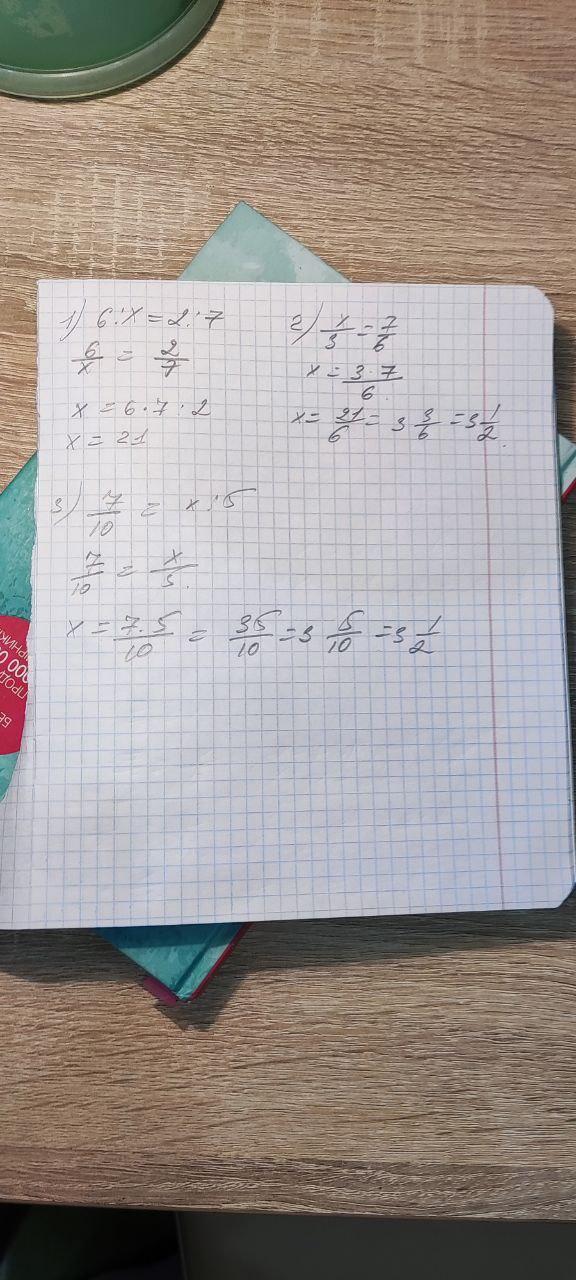 1) 6 : x = 2 : 7
6/x = 2/7
x = 6 · 7 : 2
x = 21
2) x/3 = 7/6
x = 3 · 7/6
x = 21/6 = 3 3/6 = 3 1/2
3) 7/10 = x : 5
7/10 = x/5
x = 7 · 5/10 = 35/10 = 3 5/10 = 3 1/2